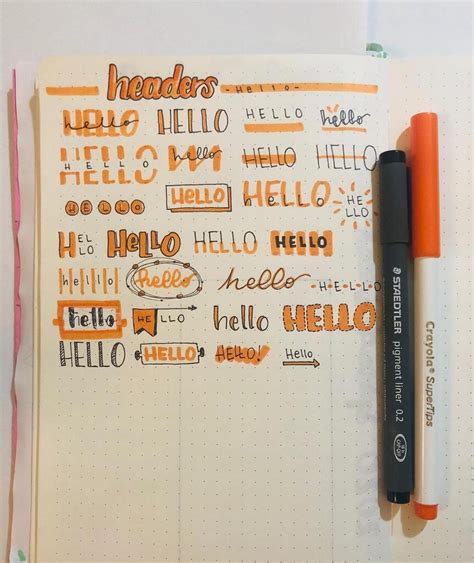 headers - Hello -
HELLO hello HELLO HELLO hello
HELLO HELLO hello HELLO HELLO
HELLO HELLO HELLO hello HELLO
HELLO HELLO HELLO HELLO
hello hello hello HELLO
hello HELLO hello HELLO
HELLO HELLO HELLO! Hello
STAEDTLER pigment liner 0.2
Crayola® SuperTips